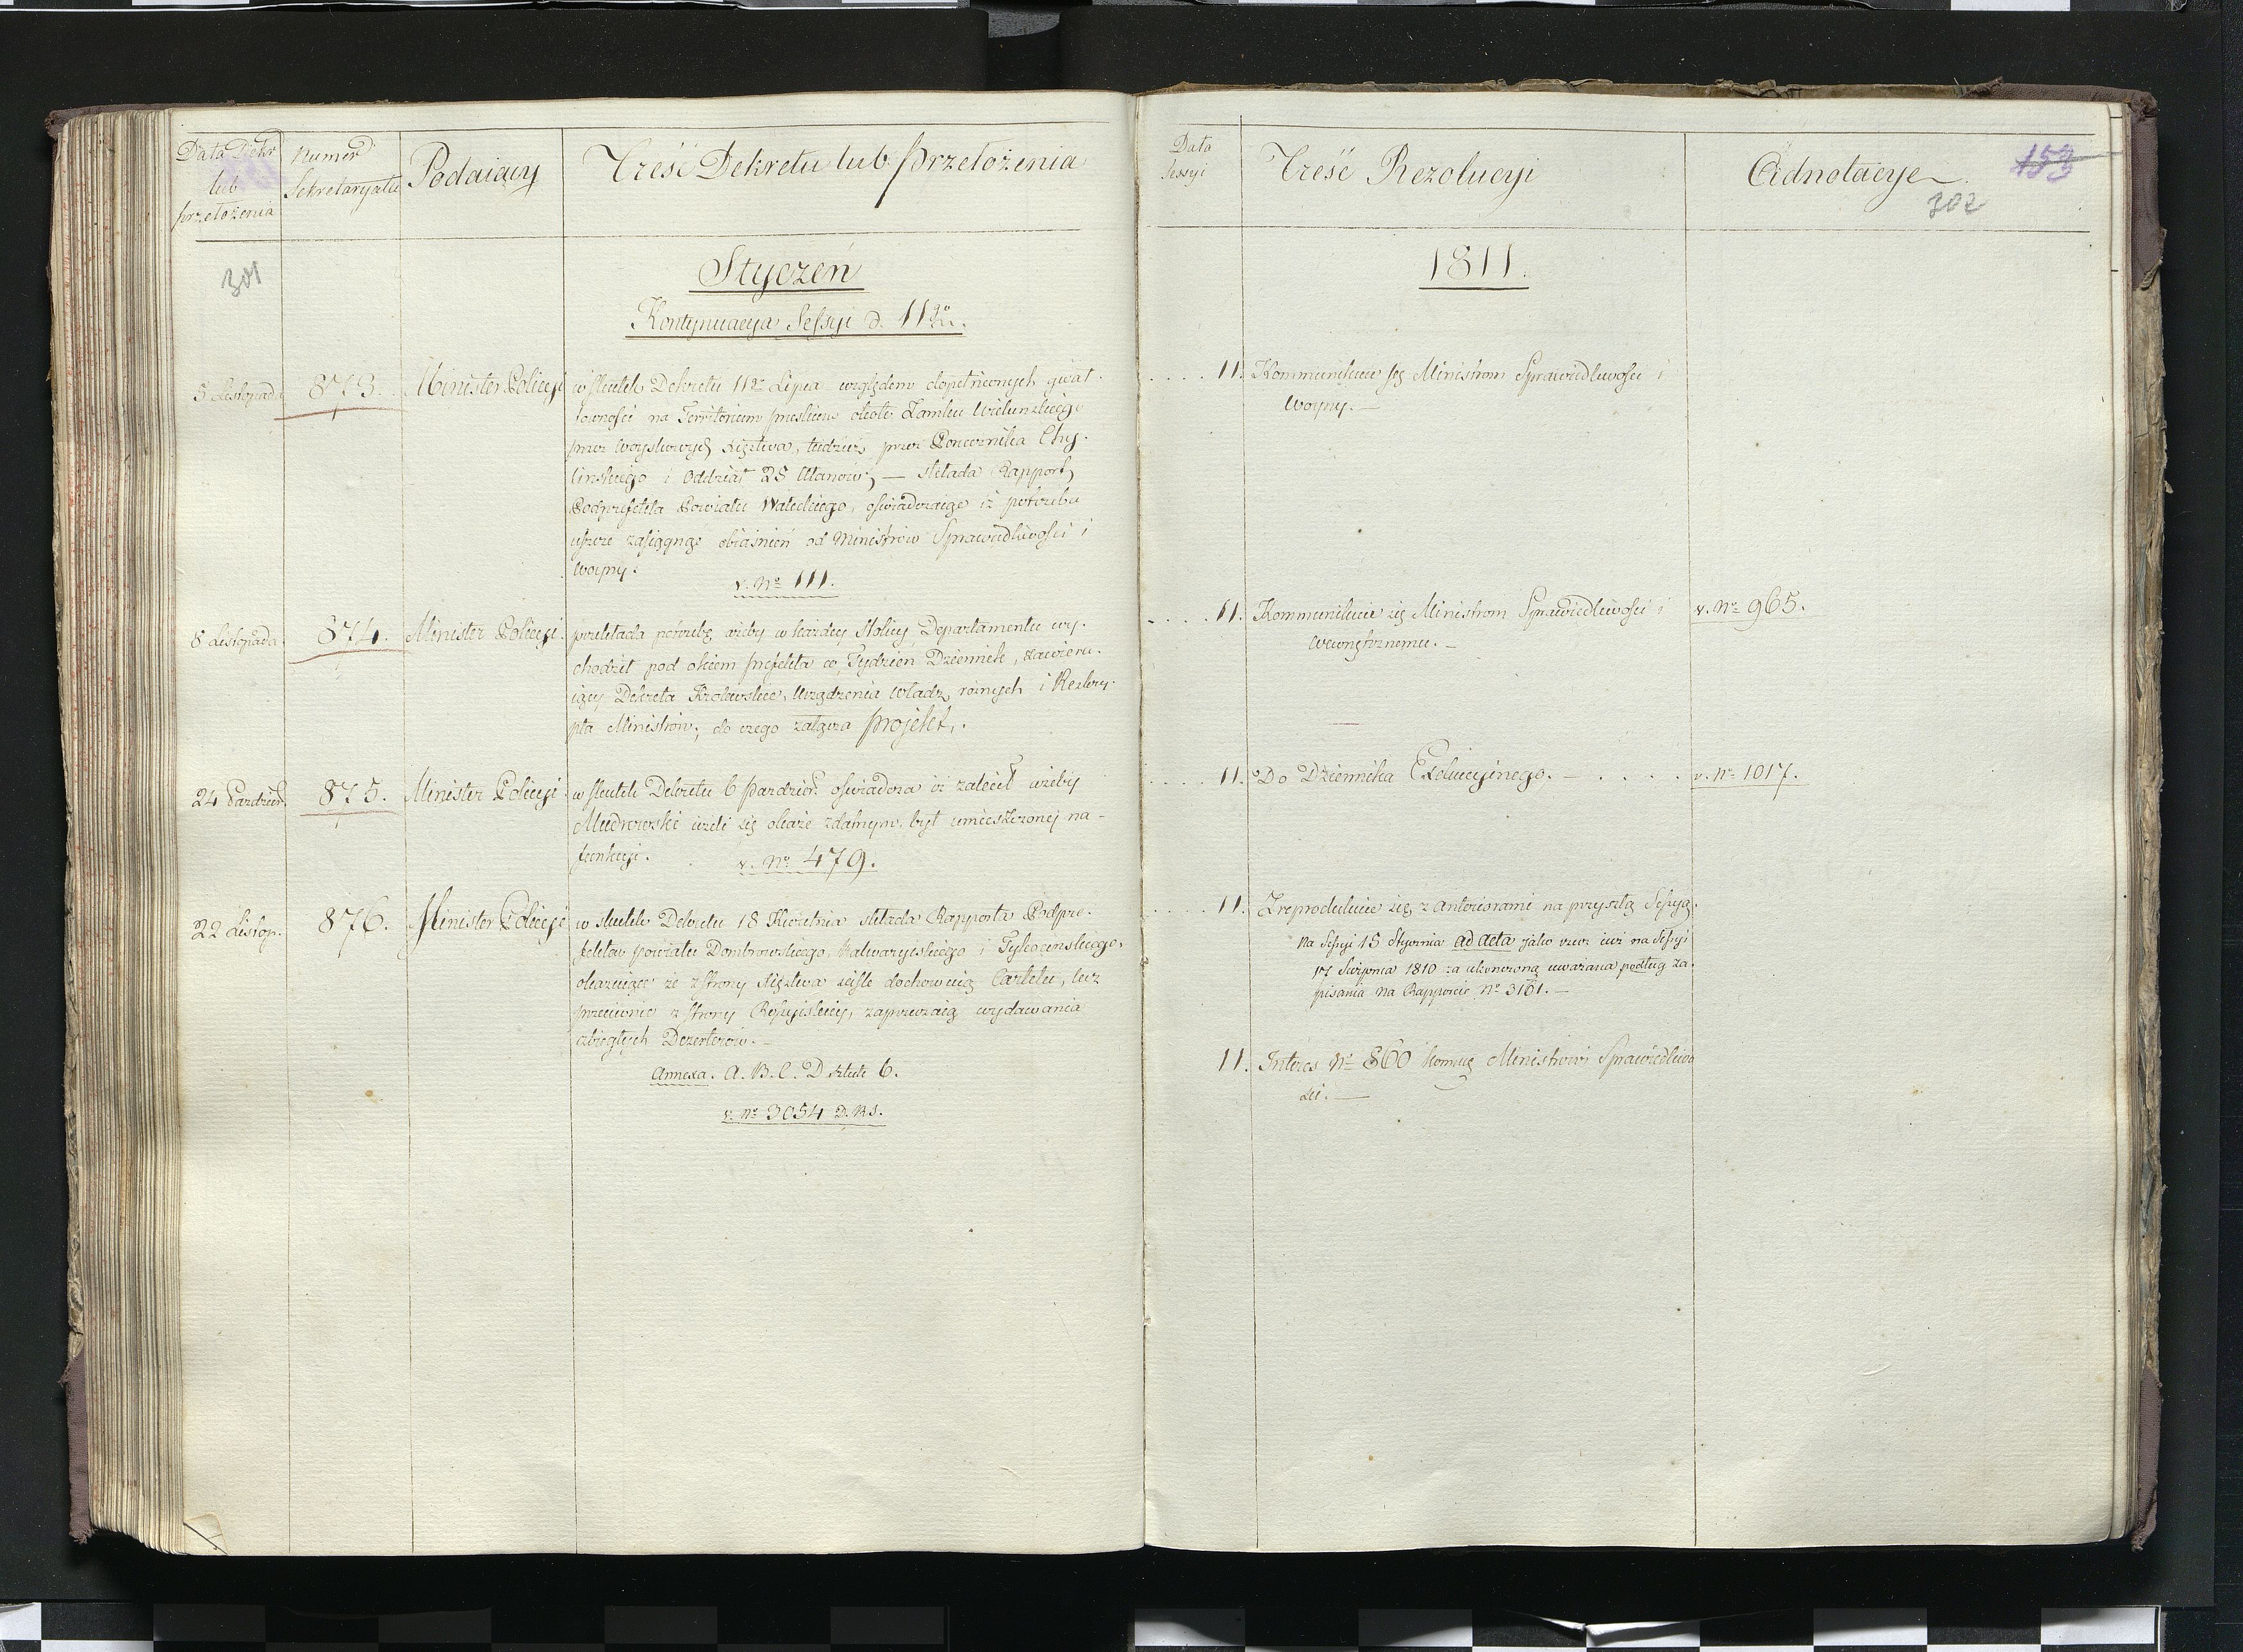 Data Dekr
lub
przełożenia
Numer
Sekretaryatu
Podaiący
Treść Dekretu lub Przełożenia
301
Styczeń
Kontynuacya Sessyi d. 11go
5 Listopada
873.
Minister Policyi
w skutek Dekretu 11go Lipca względem dopełnionych gwał-
towności na Territorium pruskiem około Zamku
przez woyskowych Xięztwa, tudzież przez Porucznika Chy-
lińskiego i Oddział 25 Ułanów, — składa Rapport
Podprefekta Powiatu Wałeckiego, oświadczaiąc iż potrzeba
ieszcze zasięgnąć obiaśnień od Ministrów Sprawiedliwości i
Woyny.
v. No 111.
8 Listopada
874.
Minister Policyi.
przekłada potrzebę, ażeby w każdey Stolicy Departamentu wy-
chodził pod okiem prefekta co Tydzień Dziennik, zawiera-
iący Dekreta Królewskie, Urządzenia Władz rożnych i Reskry-
pta Ministrów; do czego załącza projekt.
24 Paździer.
875.
Minister Policyi.
w skutek Dekretu 6 Paździer. oświadcza iż zalecił ażeby
Mudrowski ieżeli się okaże zdatnym, był umieszczonej na
funkcyi.
v. No 479.
22 Listop.
876.
Minister Policyi
w skutek Dekretu 18 Kwietnia składa Rapporta Podpre-
fektow powiatu Dombrowskiego, Kalwaryiskiego i Tykocinskiego,
okazuiące że z strony Xięztwa ściśle dochowuią Cartelu, lecz
przeciwnie z strony Rossyiskiey, zaprzeczaią wydawania
zbiegłych Dezerterów. —
Annexa. A. B. C. D sztuk 6.
v. No 3054 D. RS.
Data
Sessyi
Treść Rezolucyi
Adnotacye
153
302
1811.
11. Kommunikuie się Ministrom Sprawiedliwości i
Woyny. —
11. Kommunikuie się Ministrom Sprawiedliwości i
Wewnętrznemu. —
v. No 965.
11. Do Dziennika Exekucyinego. —
v. No 1017.
11. Zreprodukuie się z anteriorami na przyszłą Sessyą.
Na Sessyi 15 Stycznia ad acta jako rzecz iuż na Sessyi
17 Sierpnia 1810 za ukończoną uważana podług za-
pisania na Rapporcie No 3161. —
11. Interes No 860 kommu: Ministrowi Sprawiedliwo
ści. —